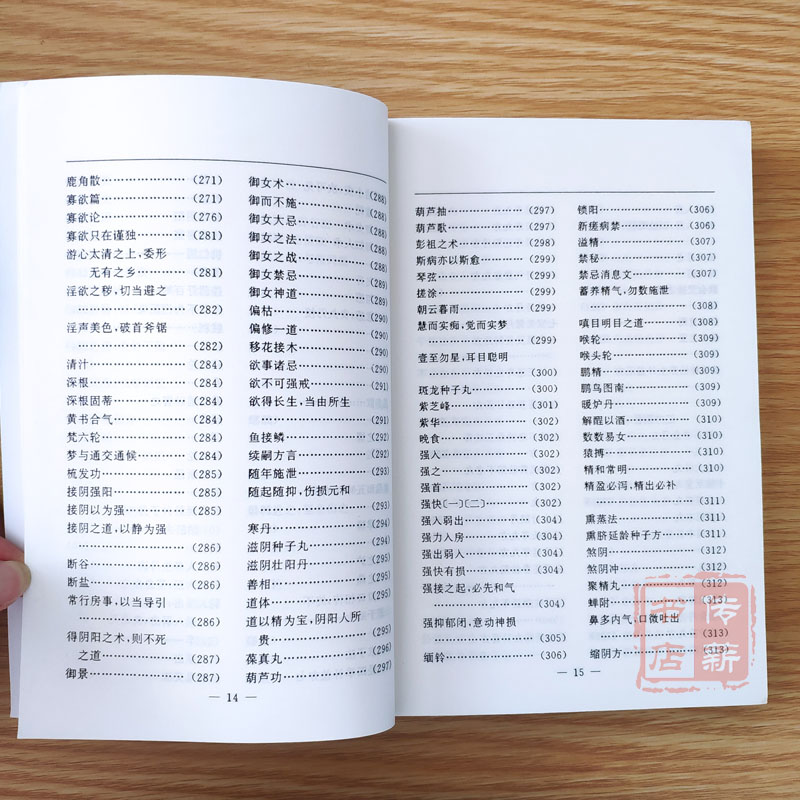 鹿角散………………（271）
寡欲篇………………（271）
寡欲论………………（276）
寡欲只在谨独………（281）
游心太清之上，委形
无有之乡…………（281）
淫欲之秽，切当避之
………………………（282）
淫声美色，破首斧锯
………………………（282）
清汁…………………（284）
深根…………………（284）
深根固蒂……………（284）
黄书合气……………（284）
梵六轮………………（284）
梦与通交通候………（284）
梳发功………………（285）
接阴强阳……………（285）
接阴以为强…………（285）
接阴之道，以静为强
………………………（286）
断谷…………………（286）
断盐…………………（286）
常行房事，以当导引
………………………（286）
得阴阳之术，则不死
之道………………（287）
御景…………………（287）
御女术………………（288）
御而不施……………（288）
御女大忌……………（288）
御女之法……………（288）
御女之战……………（288）
御女禁忌……………（290）
御女神道……………（290）
偏枯…………………（290）
偏修一道……………（290）
移花接木……………（290）
欲事诸忌……………（290）
欲不可强戒…………（291）
欲得长生，当由所生
………………………（291）
鱼接鳞………………（292）
续嗣方言……………（292）
随年施泄……………（293）
随起随抑，伤损元和
………………………（293）
寒丹…………………（294）
滋阴种子丸…………（295）
滋阴壮阳丹…………（295）
善相…………………（295）
道体…………………（295）
道以精为宝，阴阳人所
贵…………………（295）
葆真丸………………（296）
葫芦功………………（297）
— 14 —
葫芦抽………………（297）
葫芦歌………………（297）
彭祖之术……………（298）
斯病亦以斯愈………（299）
琴弦…………………（299）
搓涂…………………（299）
朝云暮雨……………（299）
慧而实痴，觉而实梦
………………………（299）
壹至勿星，耳目聪明
………………………（300）
斑龙种子丸…………（300）
紫芝峰………………（301）
紫华…………………（301）
晚食…………………（301）
强入…………………（302）
强之…………………（302）
强首…………………（302）
强快〔一〕〔二〕……（302）
强入弱出……………（304）
强力入房……………（304）
强出弱入……………（304）
强快有损……………（304）
强接之起，必先和气
………………………（304）
强抑郁闭，意动神损
………………………（305）
缅铃…………………（306）
锁阳…………………（306）
新瘥病禁……………（306）
溢精…………………（307）
禁秘…………………（307）
禁忌消息文…………（307）
蓄养精气，勿数施泄
………………………（308）
嗔目明目之道………（308）
喉轮…………………（309）
喉头轮………………（309）
鹏精…………………（309）
鹏鸟图南……………（309）
暖炉丹………………（309）
解酲以酒……………（310）
数数易女……………（310）
猿搏…………………（310）
精和常明……………（310）
精盈必泻，精出必补
………………………（311）
熏蒸法………………（311）
熏脐延龄种子方……（311）
煞阴…………………（312）
煞阴冲………………（312）
聚精丸………………（312）
蝉附…………………（313）
鼻多内气，口微吐出
………………………（313）
缩阴方………………（313）
— 15 —
传新
书店